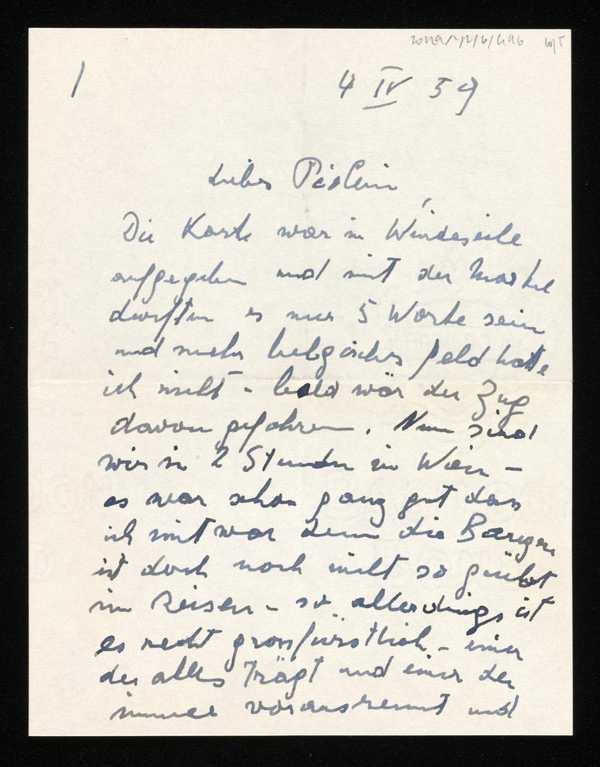 1
4 IV 59
Liebes Peterlein,
Die Karte war in Windeseile
aufgegeben und mit der Marke
durften es nur 5 Worte sein
und mehr belgisches Geld hatte
ich nicht – bald wär der Zug
davon gefahren. Nun sind
wir in 2 Stunden in Wien –
es war schon ganz gut dass
ich mit war denn die
ist doch noch nicht so geübt
im Reisen – so allerdings ist
es recht grossfürstlich – einer
der alles trägt und einer der
immer vorausrennt und